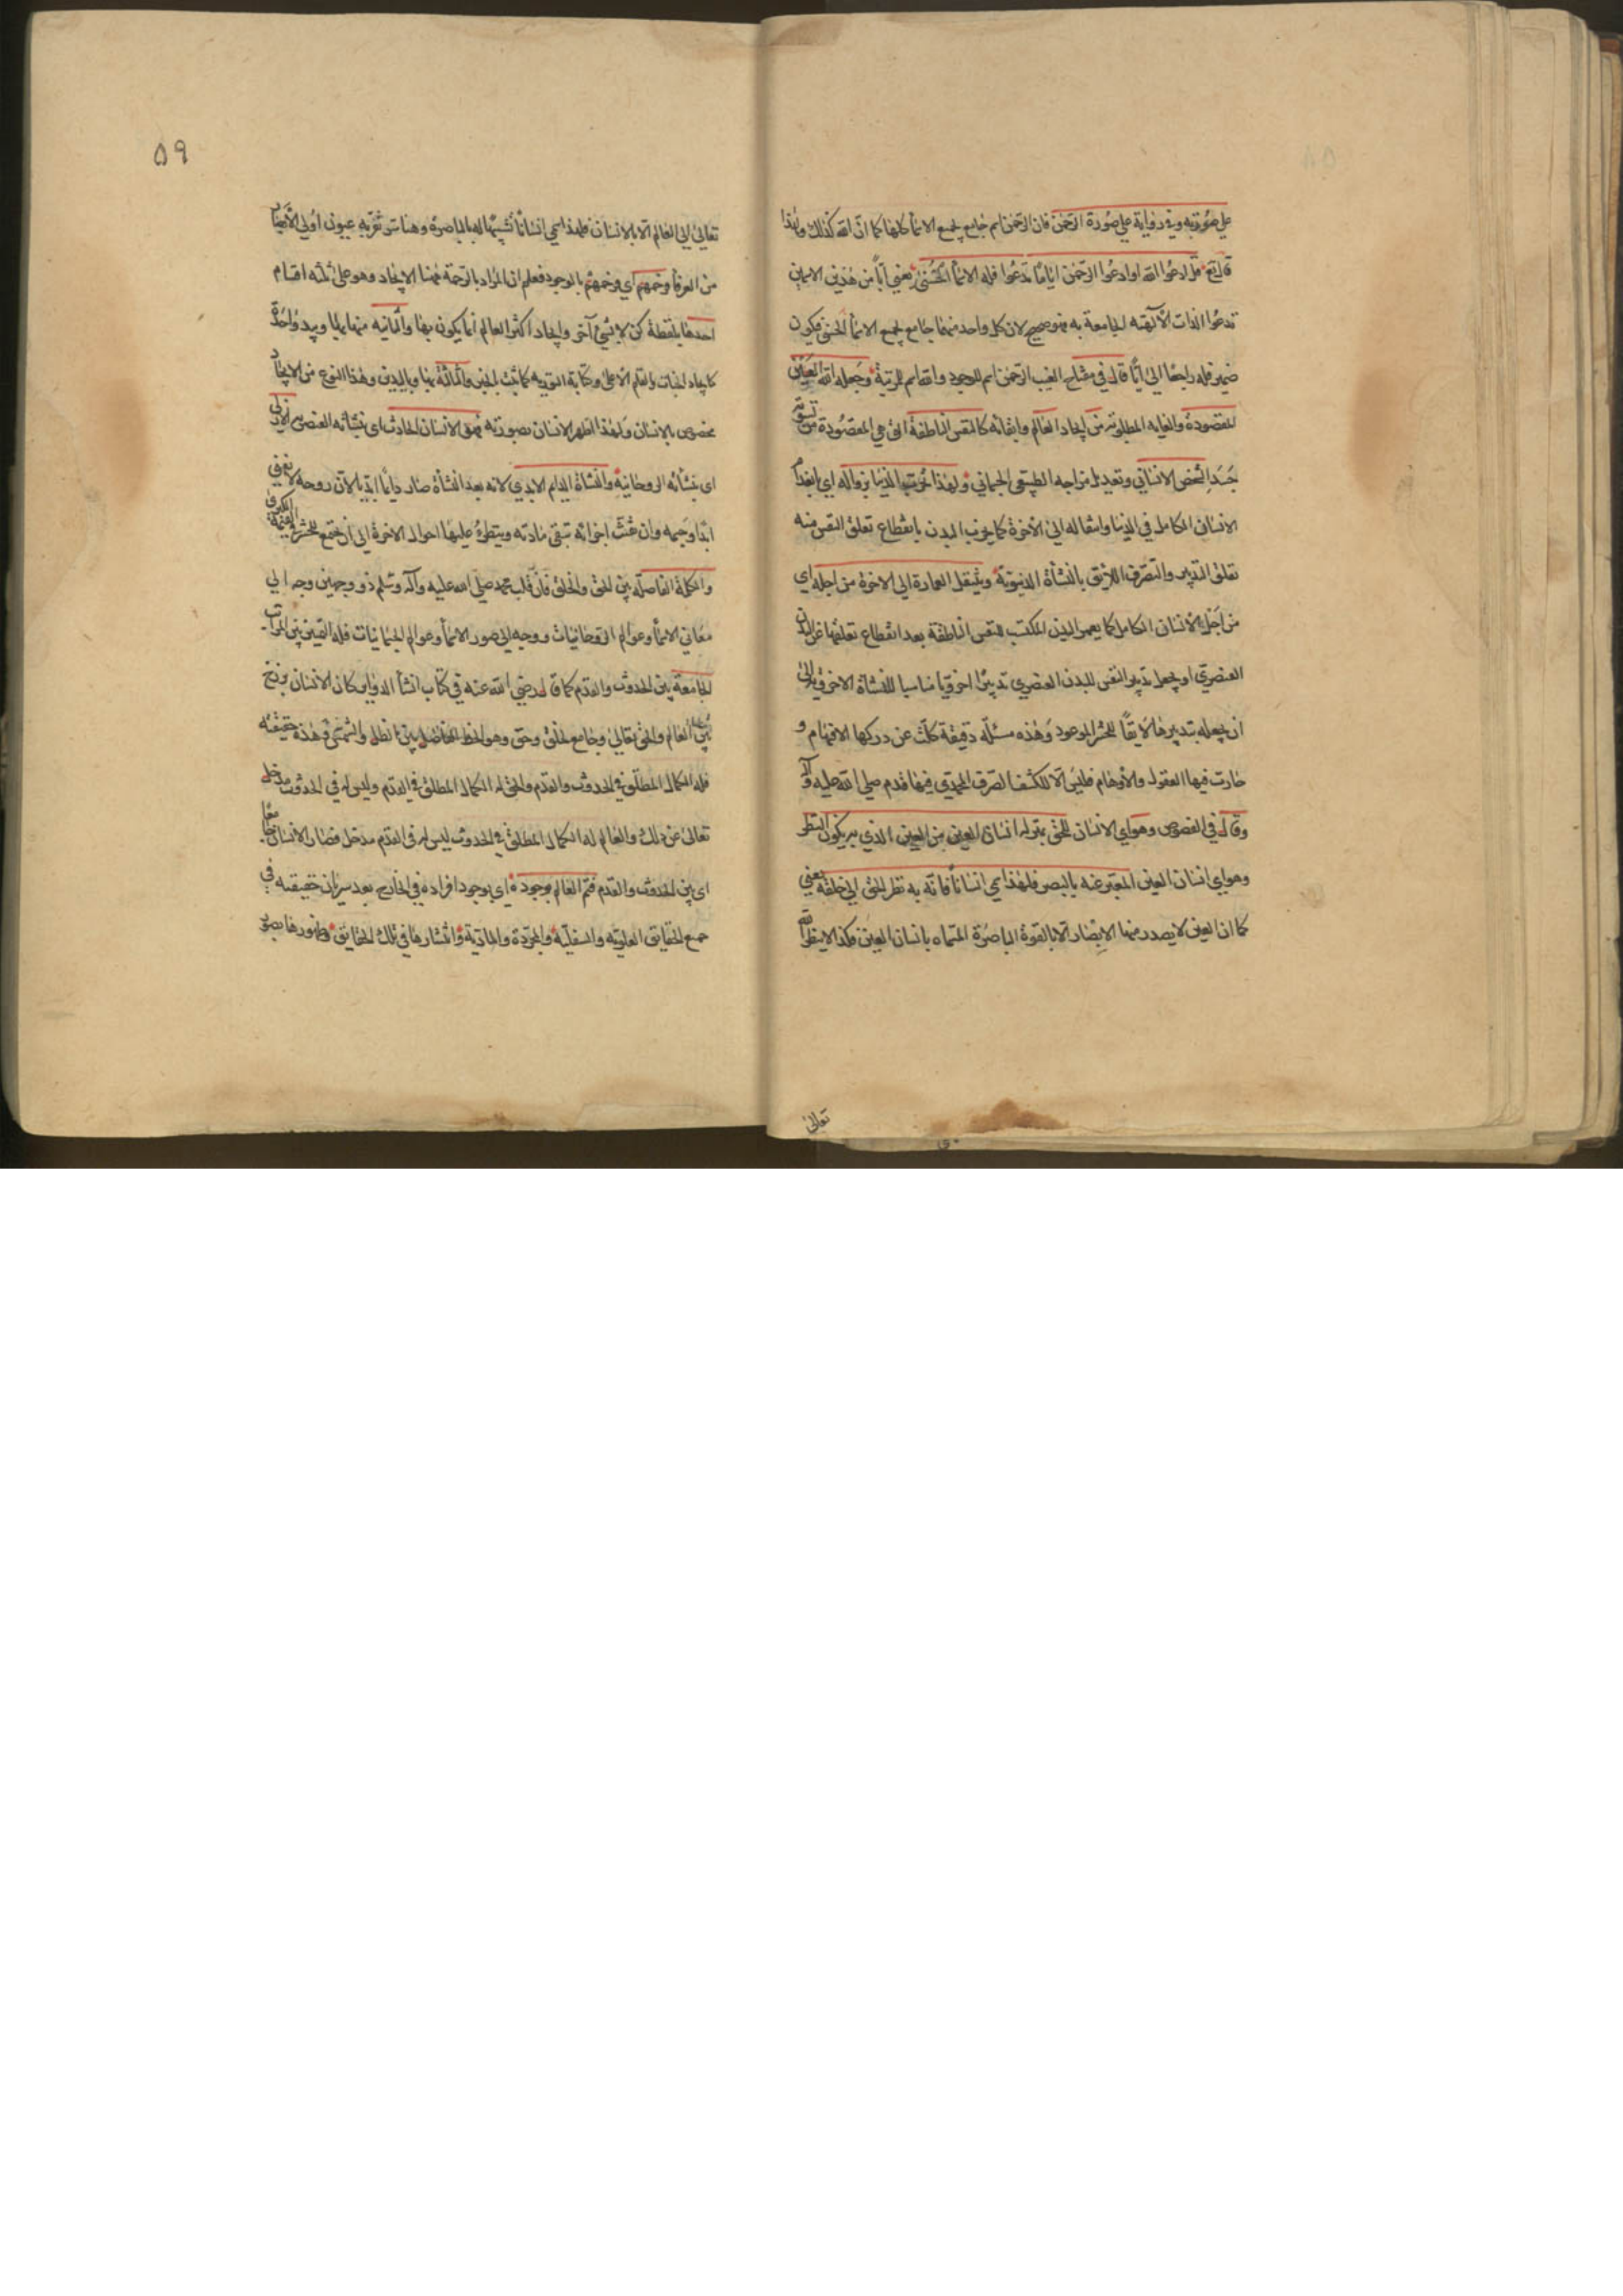 علي صورته وفي رواية علي صورة الرحمن فان الرحمن اسم جامع لجميع الاسماء كلها كما ان الله كذلك ولهذا
قال تع قل ادعوا الله او ادعوا الرحمن اياما تدعوا فله الاسماء الحسنى يعني ايا من هذين الاسمين
تدعوا الذات الالهية الجامعة به فهو صحيح لان كل واحد منهما جامع لجميع الاسماء الحسنى فيكون
ضمير فله راجعا الى ايا قال في مفتاح الغيب الرحمن اسم للوجود والله اسم للرتبة وجعله الله العين
المقصودة والغاية المطلوبة من ايجاد العالم وابقائه كالنفس الناطقة التي هي المقصودة من تسوية
جسد الشخص الانساني وتعديل مزاجه الطبيعي الجسماني ولهذا تخرب الدنيا بزواله اي بانعدام
الانسان الكامل في الدنيا وانتقاله الى الآخرة كما يخرب البدن بانقطاع تعلق النفس منه
تعلق التدبير والتصرف اللايق بالنشأة الدنيوية وتنتقل العمارة الي الاخرة من اجله اي
من اجل الانسان الكامل كما يعمر البدن المكتسب للنفس الناطقة بعد انقطاع تعلقها عن البدن
العنصري او يجعل تدبير النفس للبدن العنصري تدبيرا اخرويا مناسبا للنشأة الاخروية الى
ان يجعله بتدبيرها لايقا للحشر الموعود وهذه مسئلة دقيقة كلت عن دركها الافهام و
حارت فيها العقول والاوهام فليس الا للكشف الصرف المحمدي فيها قدم صلى الله عليه وآله
وقال في الفصوص وهو اي الانسان للحق بمنزلة انسان العين من العين الذي به يكون النظر
وهو اي انسان العين المعبر عنه بالبصر فلهذا سمي انسانا فانه به نظر الحق الى خلقه يعني
كما ان العين لا يصدر منها الابصار الا بالقوة الباصرة المسماة بانسان العين فكذا لا ينظر الله
تعالى
٥٩
تعالى الى العالم الا بالانسان فلهذا سمي انسانا تشبيها له بالباصرة وهنا سر تقر به عيون اولي الابصار
من العرفاء ورحمهم اي ورحمهم بالوجود فعلم ان المراد بالرحمة ههنا الايجاد وهو على ثلثة اقسام
احدها بلفظة كن لا بشيء آخر وايجاد اكثر العالم انما يكون بها والثانية منها بها وبيد واحدة
كايجاد الجنات والقلم الاعلى وكتابة التورية كما ثبت الخبر والثالثة بها وباليدين وهذا النوع من الايجاد
مخصوص بالانسان ولهذا ظهر الانسان بصورته فهو الانسان الحادث اي بنشأته العنصرية الازلي
اي بنشأته الروحانية والنشأة الدايم الابدي لانه بعد النشأة صار دايما ابديا لان روحه لا يفنى
ابدا وجسمه وان فنت اجزائه تبقى مادته ويتطرء عليها احوال الاخرة الى ان تجتمع للحشر في القيمة الكبرى
والكلمة الفاصلة بين الحق والخلق فان قلب محمد صلى الله عليه وآله وسلم ذو وجهين وجه الي
معاني الاسماء وعوالم الروحانيات ووجه الى صور الاسماء وعوالم الجسمانيات فله التمييز بين المراتب
الجامعة بين الحدوث والقدم كما قال رضي الله عنه في كتاب انشاء الدواير فكان الانسان برزخ
بين العالم والحق تعالى وجامع لخلق وحق وهو الخط الفاصل بين الظل والشمس وهذه حقيقته
فله الكمال المطلق في الحدوث والقدم والحق له الكمال المطلق في القدم وليس له في الحدوث مدخل
تعالى عن ذلك والعالم له الكمال المطلق في الحدوث ليس له في القدم مدخل فصار الانسان جامعا
اي بين الحدوث والقدم فتم العالم بوجوده اي بوجود افراده في الخارج بعد سريان حقيقته في
جميع الحقايق العلوية والسفلية والمجردة والمادية وانتشارها في تلك الحقايق وظهورها بصور